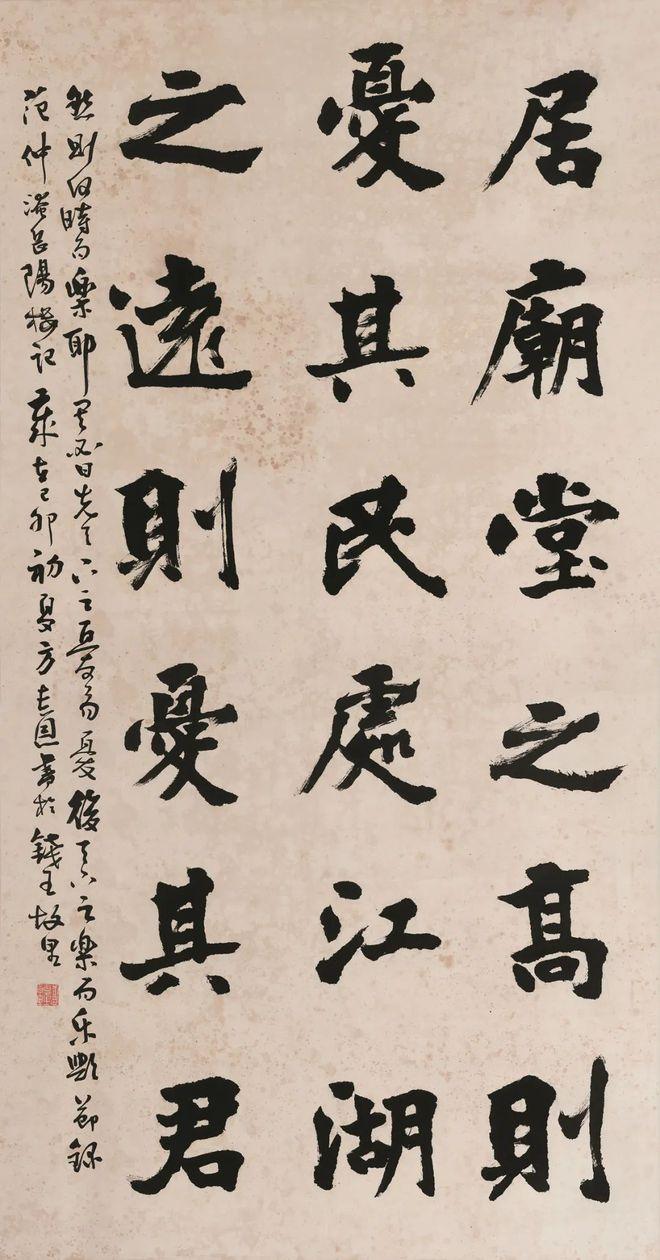 居廟堂之高則
憂其民處江湖
之遠則憂其君
然則何時而樂耶其必曰先天下之憂而憂後天下之樂而乐歟節錄
范仲淹岳陽樓記歲在己卯初夏方志恩書於錢王故里